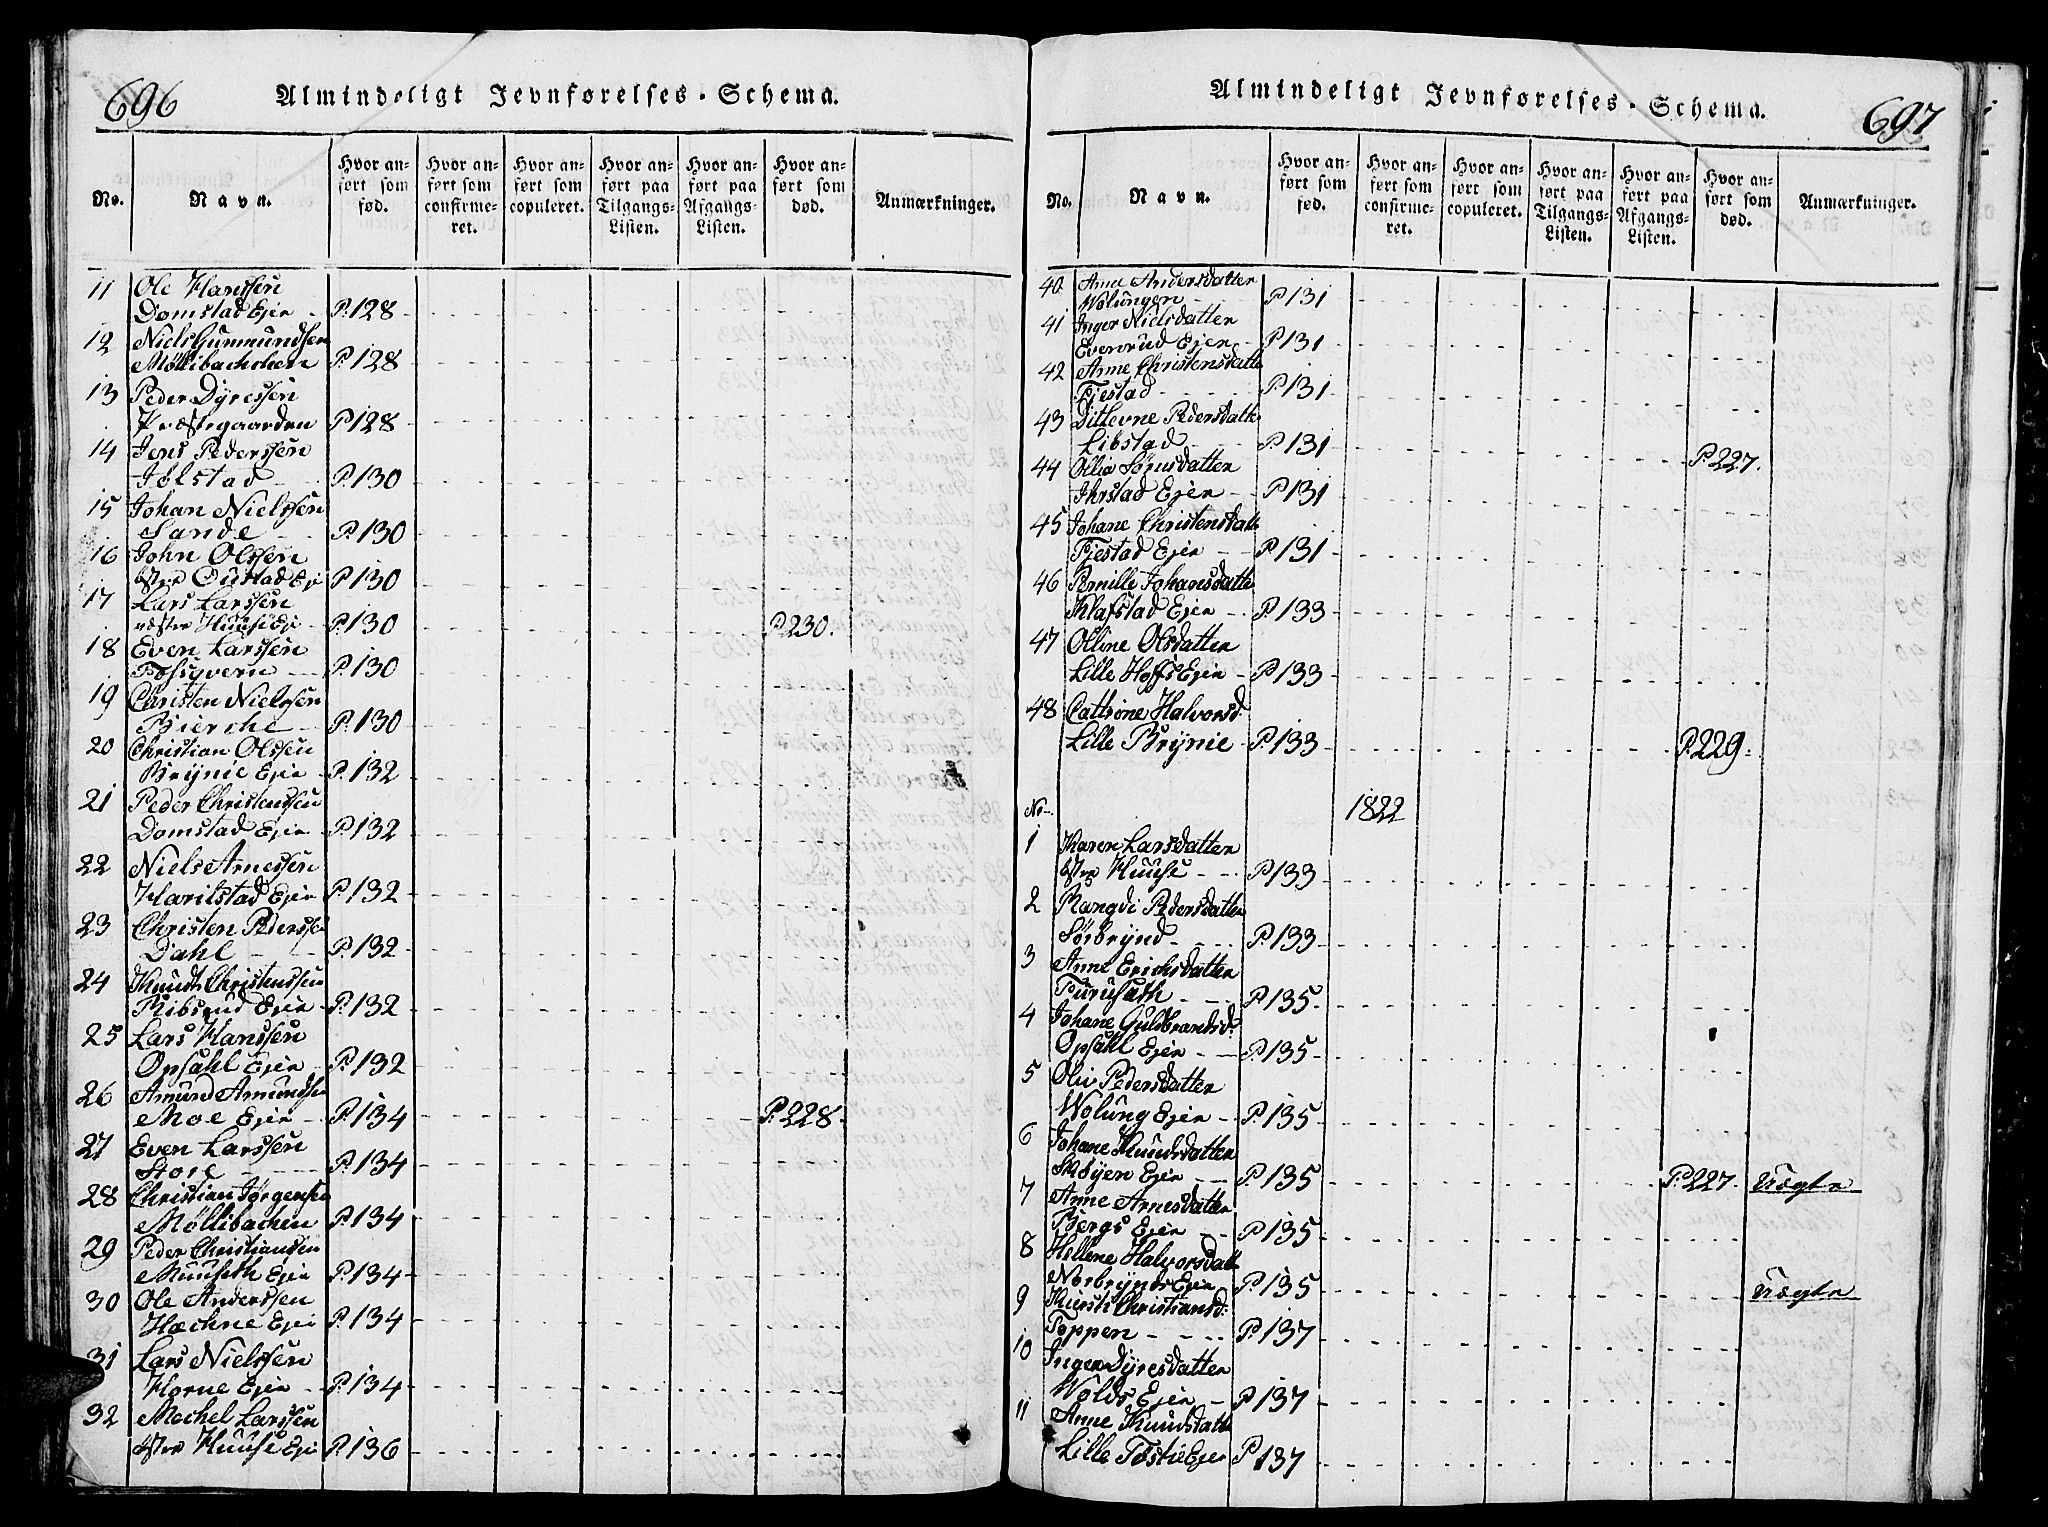 696
Almindeligt Jevnførelses-Schema.
No.
Navn.
Hvor anført som fød.
Hvor anført som confirmeret.
Hvor anført som copuleret.
Hvor anført paa Tilgangs-Listen.
Hvor anført paa Afgangs-Listen.
Hvor anført som død.
Anmærkninger.
11 Ole Hanssen
Domstad Ejer P.128
12 Niels Gummundsen
Møllibachchen P.128
13 Peder Dyressen
Præstegaarden P.128
14 Jens Pederssen
Jølstad P.130
15 Johan Nielssen
Sande P.130
16 John Olssen
østre Ejr P.130
17 Lars Larssen
Huuse Eje P.130 P.230.
18 Even Larssen
P.130
19 Christen Nielssen
Bierche P.130
20 Christian Olssen
Brÿnie Ejer P.132
21 Peder Christenssen
Domstad Ejer P.132
22 Niels Arnessen
Harilstad Ejer P.132
23 Christen Pederssen
Dahl P.132
24 Knudt Christenssen
Ribsrud Ejer P.132
25 Lars Hanssen
Opsahl Ejer P.132
26 Amund Amundsen
Moe Ejer P.134 P.228.
27 Even Larssen
Store P.134
28 Christian Jørgensen
Møllibachen P.134
29 Peder Christiansen
Muuseth Ejer P.134
30 Ole Anderssen
Hæchne Ejer P.134
31 Lars Nielssen
Horne Ejer P.134
32 Mechel Larssen
østre Huuse Eje P.136
697
Almindeligt Jevnførelses-Schema.
No.
Navn.
Hvor anført som fød.
Hvor anført som confirmeret.
Hvor anført som copuleret.
Hvor anført paa Tilgangs-Listen.
Hvor anført paa Afgangs-Listen.
Hvor anført som død.
Anmærkninger.
40 Anne Andersdatter
Wolungen P.131
41 Inger Nielsdatter
Evenrud Ejer P.131
42 Anne Christensdatte
Fjestad P.131
43 Dithevne Pedersdatte
Libstad P.131 P.227.
44 Ollia Sørnsdatter
Ihrstad Ejer P.131
45 Johane Christensdatt
Fjestad Ejer P.131
46 Pernille Johansdatte
Klafstad Ejer P.133
47 Olline Olsdatter
Lille Hoffs Ejer P.133
48 Cattrine Halvorsd:
Lille Brÿnie P.133 P.229.
No 1822
1 Karen Larsdatter
østre Huuse P.133
2 Rangdi Pedersdatter
Sørbrÿnd P.133
3 Anne Erichsdatter
Furuseth P.135
4 Johane Guldbrandsd:
Opsahl Ejer P.135
5 Oliv Pedersdatter
Wolung Ejer P.135
6 Johane Knudsdatter
Skøyen Ejer P.135 P.227. uægte
7 Anne Arnesdatter
Bergs Ejer P.135
8 Hellene Halvorsdatt
Norbrÿnds Ejer P.135 uægte
9 Kiersti Christiansd:
Toppen P.137
10 Inger Dÿresdatter
Wolds Ejer P.137
11 Anne Knudsdatt
Lille Tøstie Ejer P 137